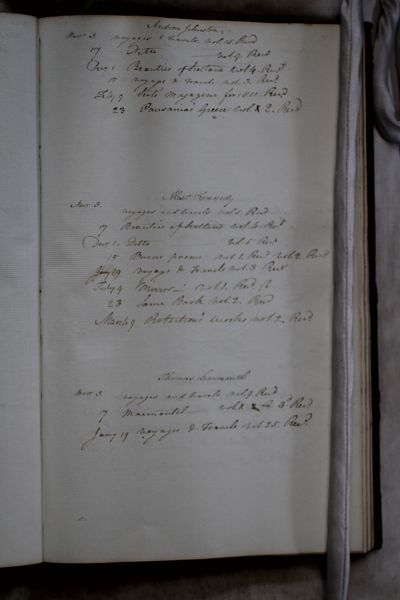 Andrew Johnston
Novr 3. voyages & travels vol. 15. Recd
17 Ditto — vol. 9. Recd
Decr 1 Beauties of Scotland vol. 4. Recd
15 voyages & Travels vol. 3. Recd
Feby 9 Magazine for 1811. Recd
23 Pausania's Greece vol. 2. Recd
Alexr Kennedy
Novr 3. voyages and travels vol. Recd
17 Beauties of Scotland vol. 4. Recd
Decr 1. Ditto — vol. 5. Recd
15 Burns poems vol. 1. Recd vol. 2. Recd
Jany 19 Voyages & Travels vol. 3 Recd
Feby 9 Mirror — vol. 1. Recd
23 Same Book vol. 2. Recd
March 9 Robertson's works vol. 2. Recd
Thomas Learmonth
Novr 3. voyages and travels vol. 9 Recd
17 Marmontel — vol. & 3d Recd
Jany 19 voyages & Travels vol. 25. Recd